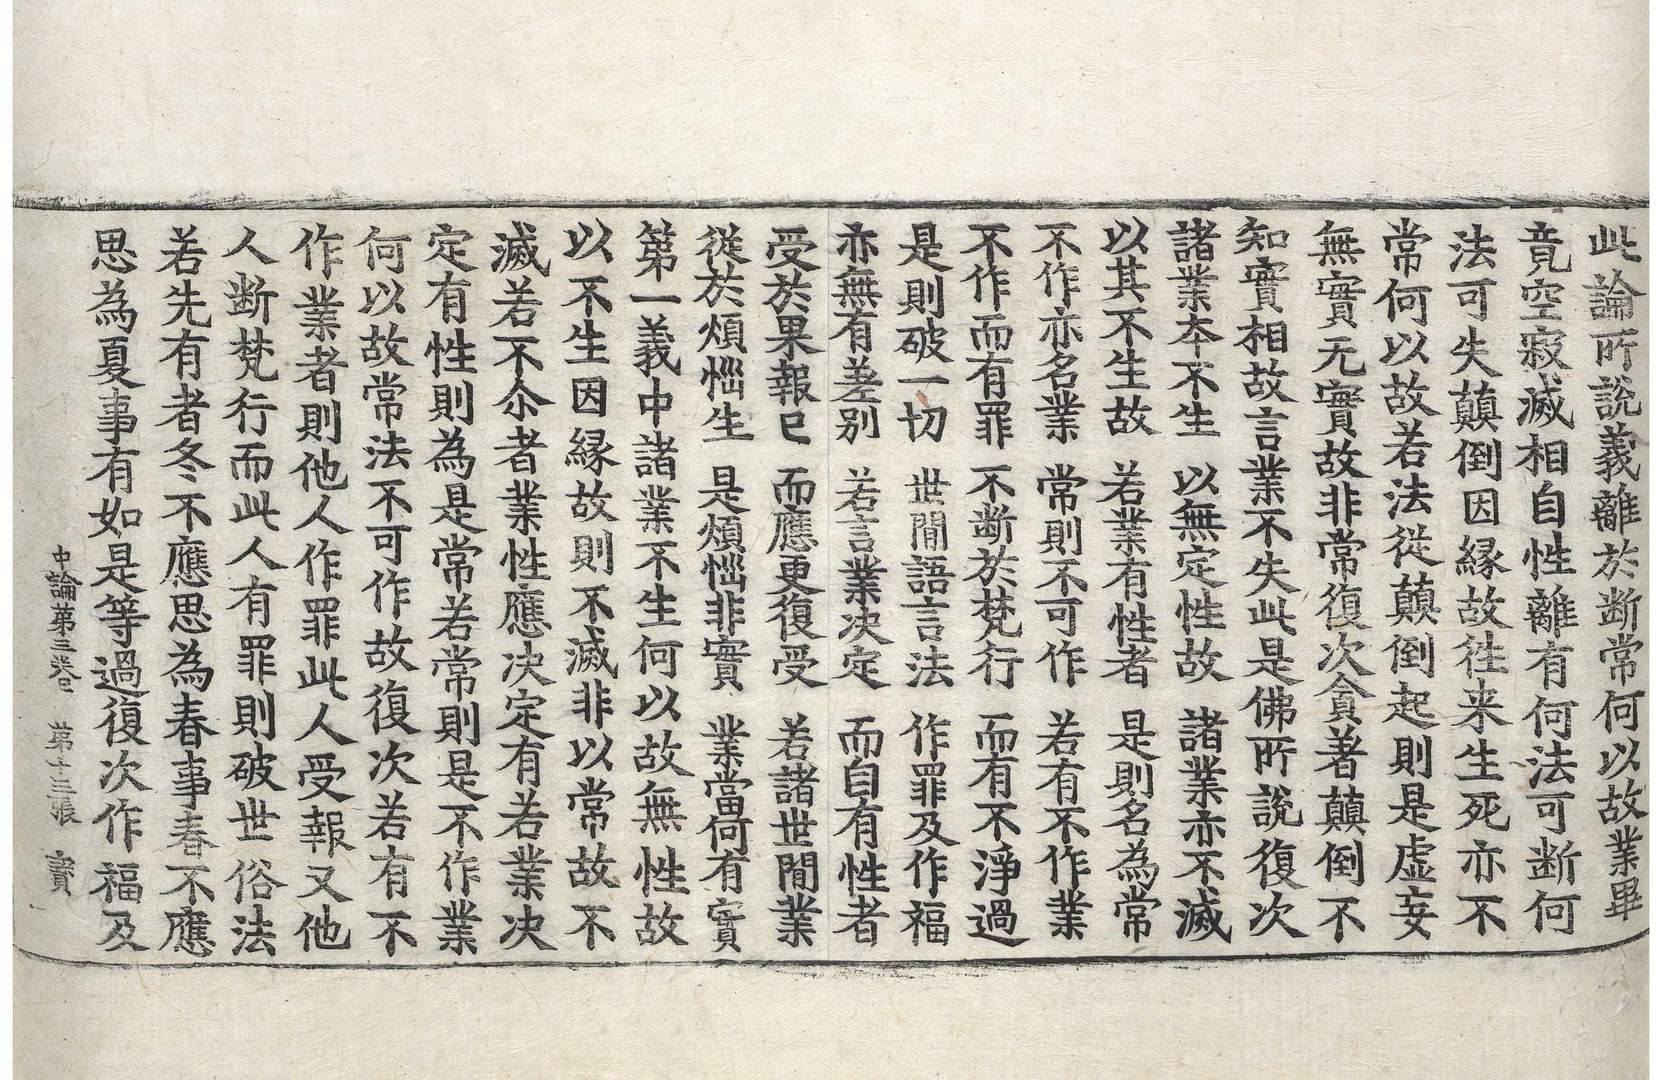 此論所說義離於断常何以故業畢
竟空寂滅相自性離有何法可断何
法可失顛倒因縁故徃来生死亦不
常何以故若法從顛倒起則是虛妄
無實无實故非常復次貪著顛倒不
知實相故言業不失此是佛所說復次
諸業夲不生 以無定性故 諸業亦不滅
以其不生故 若業有性者 是則名為常
不作亦名業 常則不可作 若有不作業
不作而有罪 不断於梵行 而有不淨過
是則破一切 世間語言法 作罪及作福
亦無有差别 若言業决定 而自有性者
受於果報已 而應更復受 若諸世間業
從於煩惱生 是煩惱非實 業當何有實
第一義中諸業不生何以故無性故
以不生因縁故則不滅非以常故不
滅若不尒者業性應决定有若業决
定有性則為是常若常則是不作業
何以故常法不可作故復次若有不
作業者則他人作罪此人受報又他
人断梵行而此人有罪則破世俗法
若先有者冬不應思為春事春不應
思為夏事有如是等過復次作福及
中論第三卷 第十三張 寳